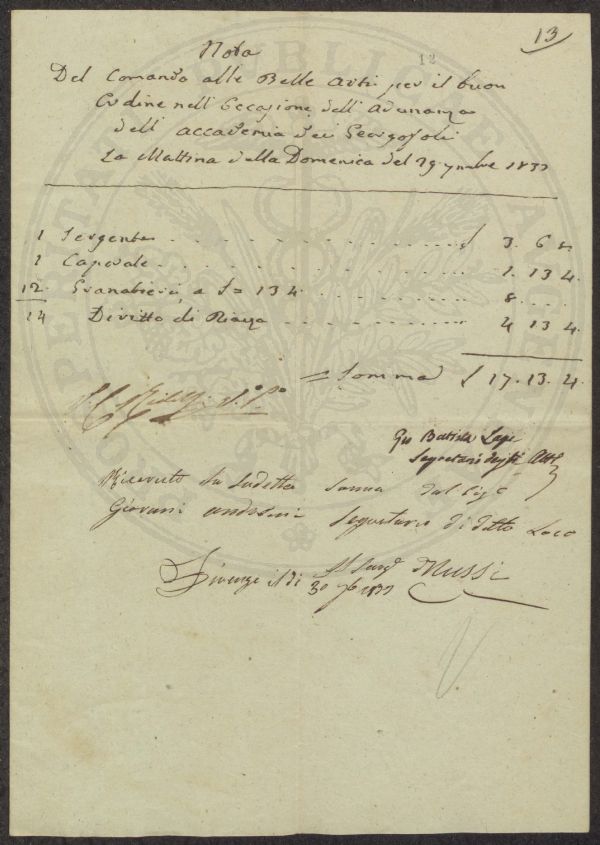 13
12
Nota
Del Comando alle Belle Arti per il buon
Ordine nell'Occasione dell'Adunanza
dell'accademia dei Georgofili
La Mattina della Domenica del 29 9mbre 1833
1 Sergente £ 3. 6 8
1 Caporale 1. 13 4.
12. Granatieri, a £= 13 4 8
14 Diritto di Piazza 4 13 4.
= Somma £ 17. 13. 4.
Gio Battista Lapi
Segretario degli Atti
Ricevuto la sudetta somma dal Sigr
Giovani segretario di detto Loco
Il Sargte Mussi
Firenze il di 30